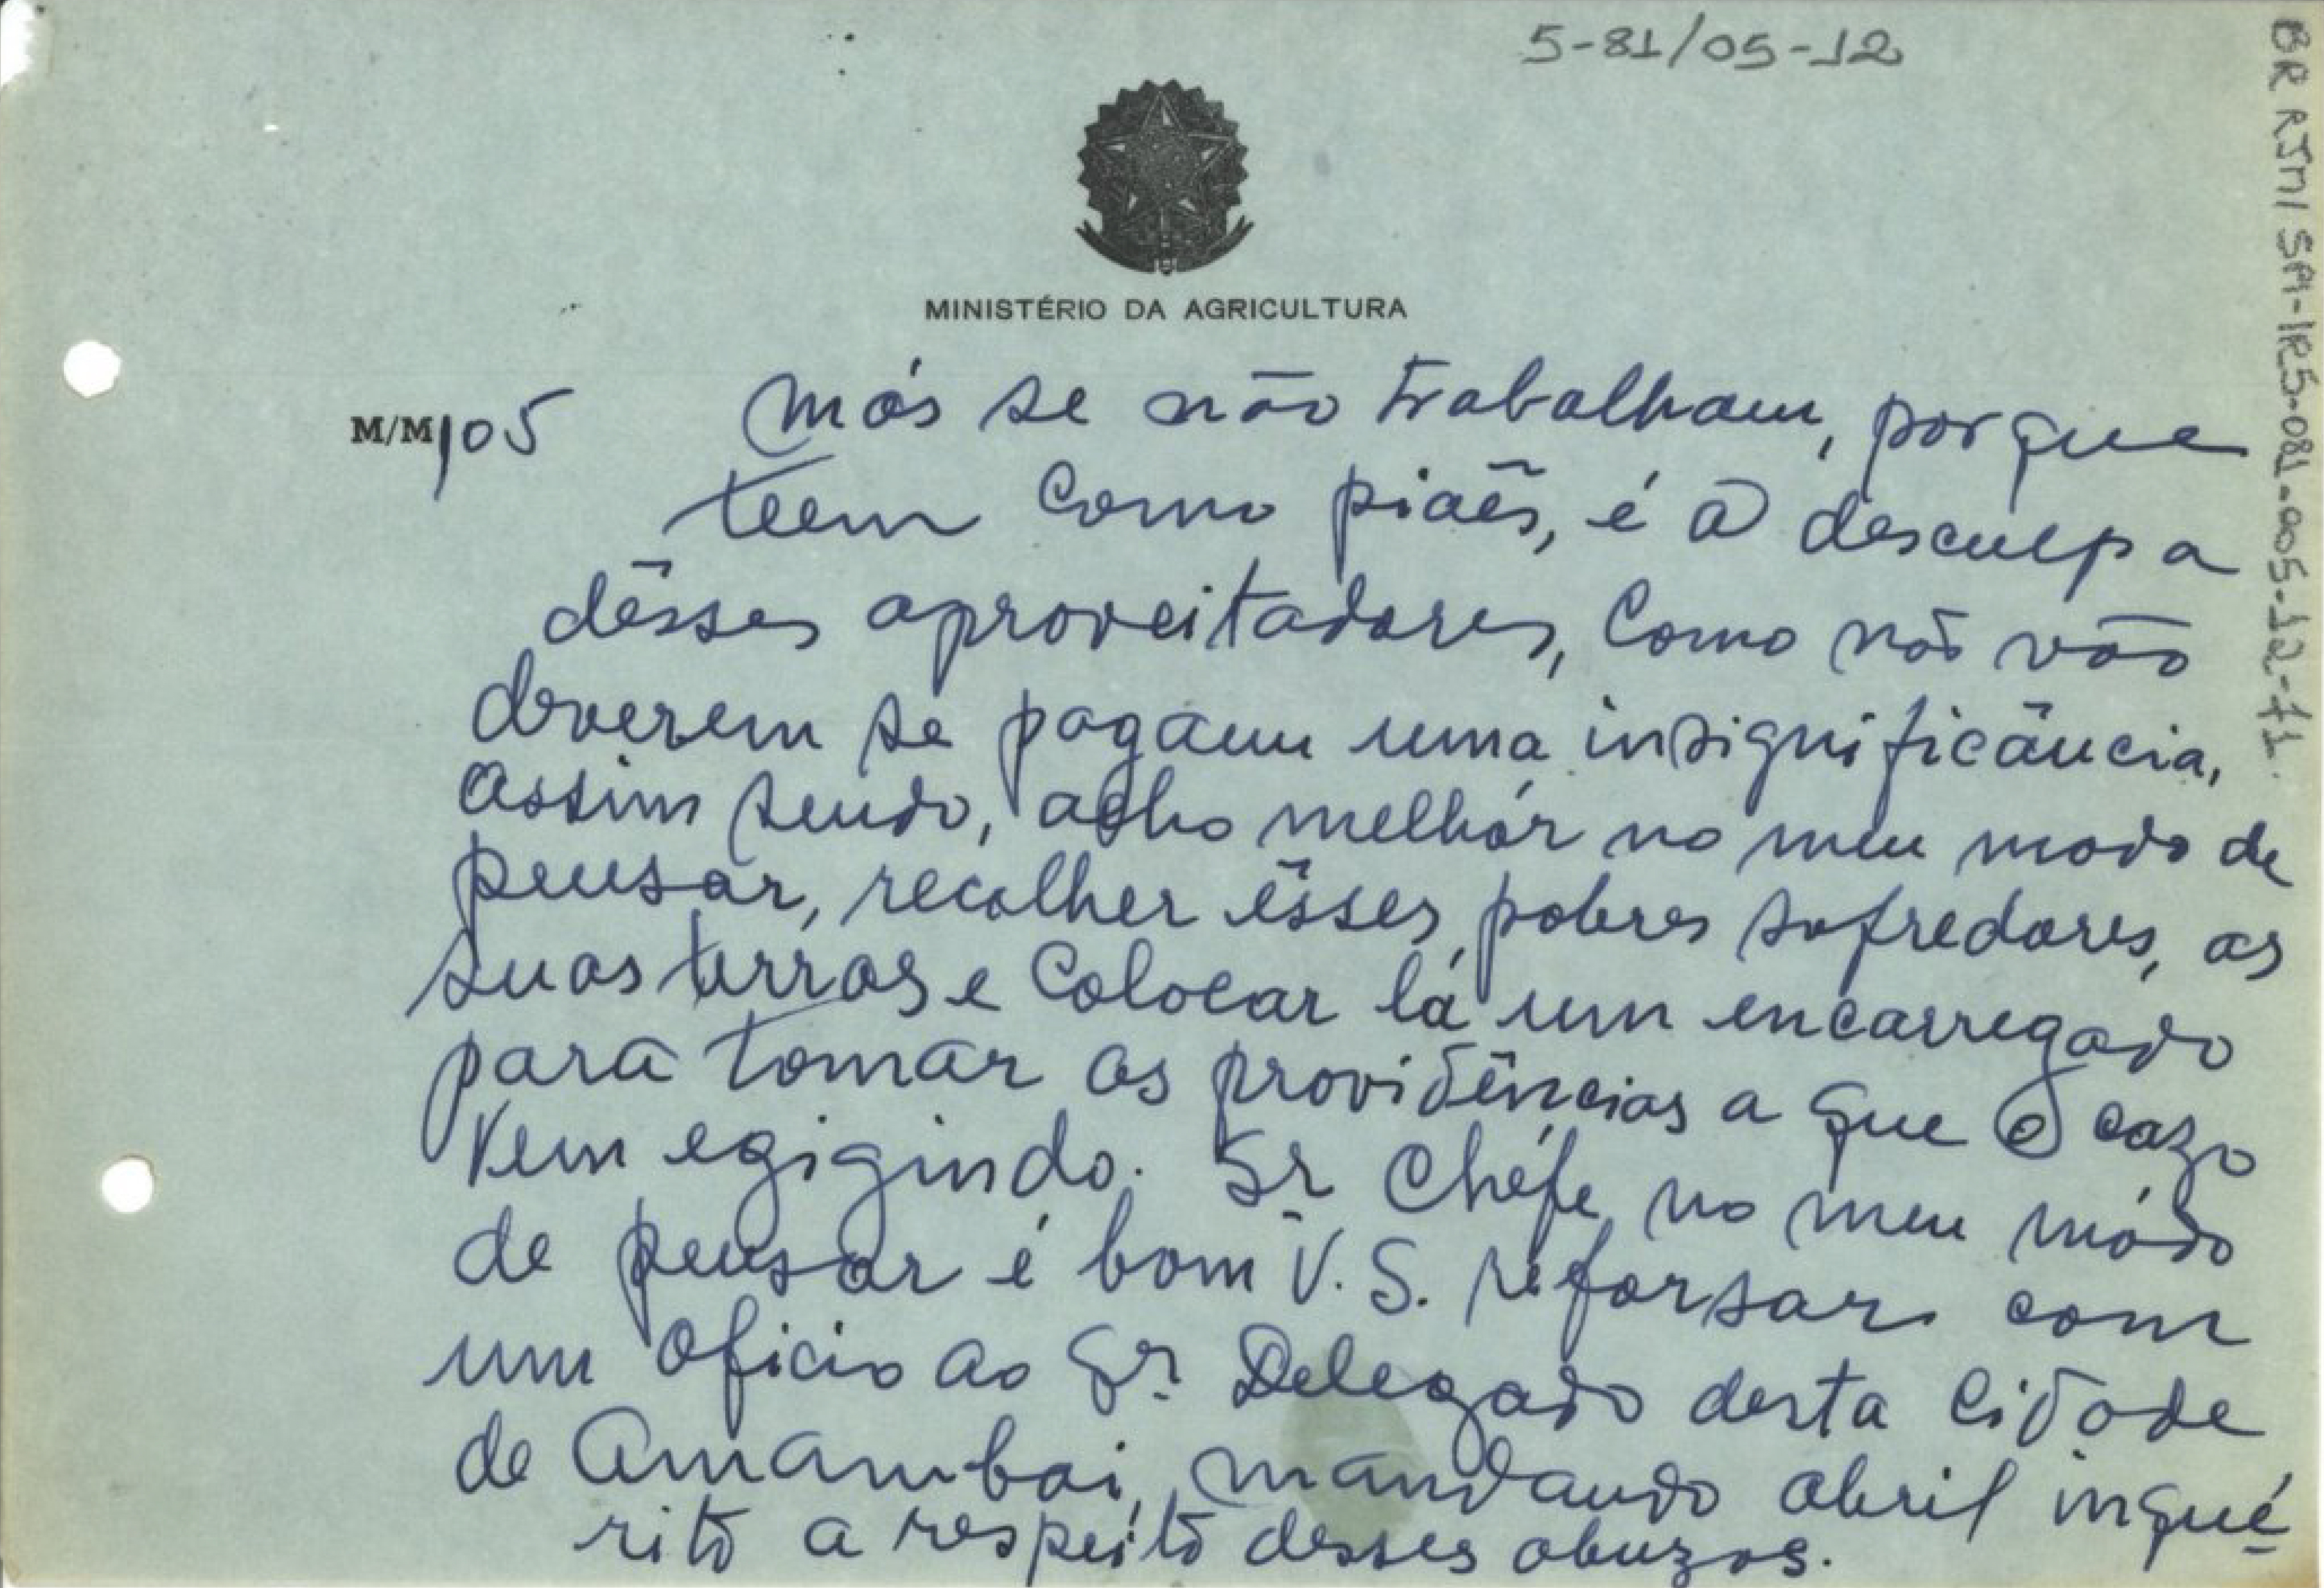 5-81/05-12
BR RJMI SPI-IR5-081-005-12-f1.
MINISTÉRIO DA AGRICULTURA
M/M/105
Más se não trabalham, porque
teem como piaẽs, é a desculpa
dêsses aproveitadores, Como não vão
deverem se pagam uma insignificância,
Assim sendo, acho melhór no meu modo de
pensar, recolher êsses pobres sofredores, as
suas terras e Colocar lá um encarregado
para tomar as providências a que o cazo
vem egigindo. Sr Chéfe, no meu módo
de pensar é bom V. S. reforsar com
um Oficio ao Sr. Delegado desta Cidade
de Amambai, mandando abril inqué
rito a respeito desses abuzos.